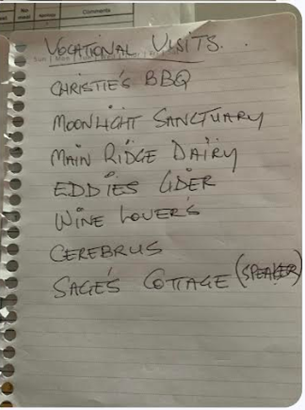 Comments
VOCATIONAL VISITS.
CHRISTIE'S BBQ
MOONLIGHT SANCTUARY
MAIN RIDGE DAIRY
EDDIES CIDER
WINE LOVER'S
CEREBRUS
SAGE'S COTTAGE (SPEAKER)